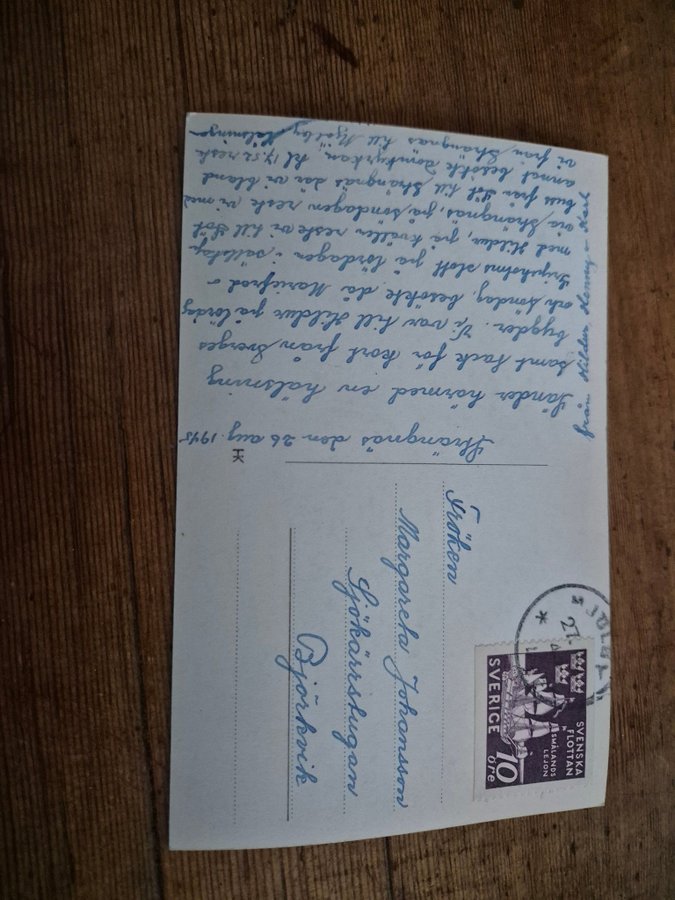 Strängnäs den 26 aug. 1945
Sänder härmed en hälsning
samt tack för kort från Sveriges
bygder. Vi var till Hildur på lördag
och söndag, besökte då Mariefred o
Gripsholms slott på lördagen i sällskap
med Hildur, på kvällen reste vi till
ora Strängnäs, på söndagen reste vi med
buss från till Strängnäs där vi bland
annat besökte domkyrkan kl 17,52 reste
vi från Strängnäs till Mjölby Hälsningar
från Hildur, Henny o Karl
HK
Fröken
Margareta Johansson
Sjökärrstugan
Björkvik
SVENSKA
FLOTTAN
SMÅLANDS
LEJON
SVERIGE
10
öre
27